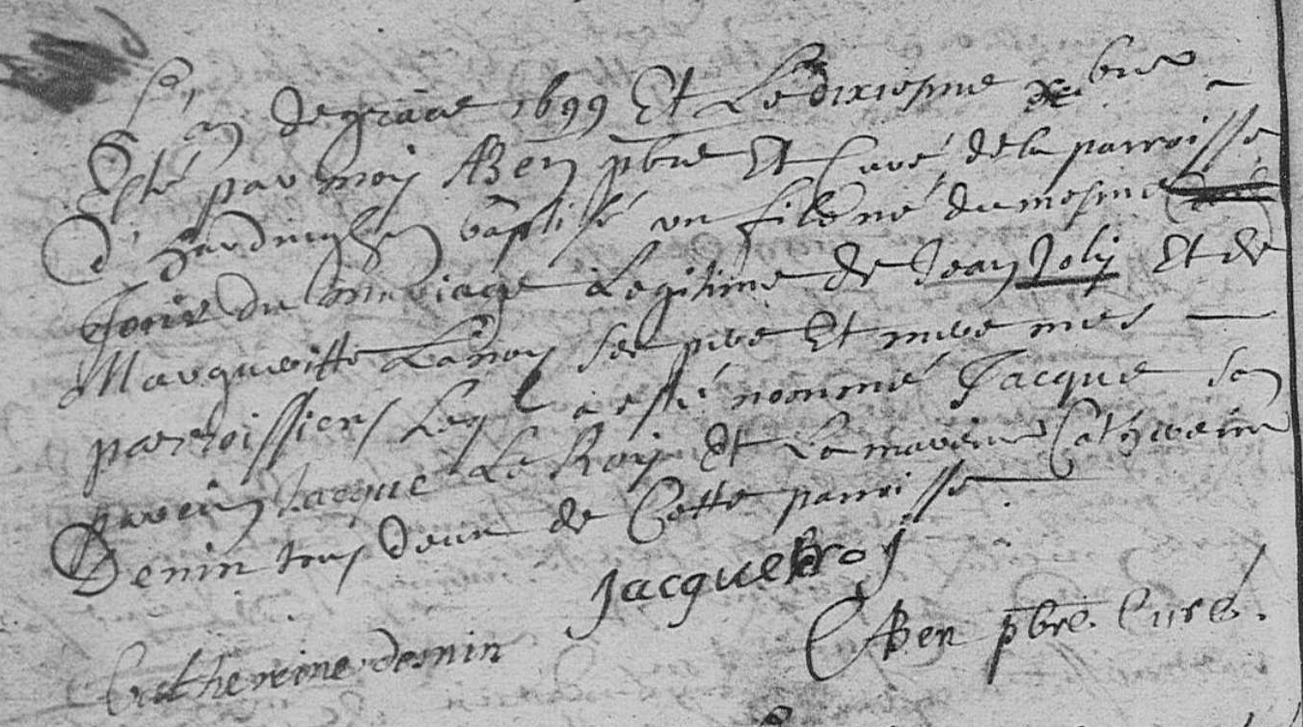 L'an de grace 1699 Et Le dixiesme xbre
Esté par moy ABen pbre Et Curé de la parroisse
D'hardinghen baptisé un fils né du mesme
Jour du mariage Legitime de Jean Joly Et de
Margueritte Lanoy ses pere Et mere mes
parroissiens Leql a esté nommé Jacque son
parein Jacque Le Roy Et La mareine Cathereine
Denin tous deux de Cette parroisse
Jacque le roy
Cathereine denin
ABen pbre. Curé.